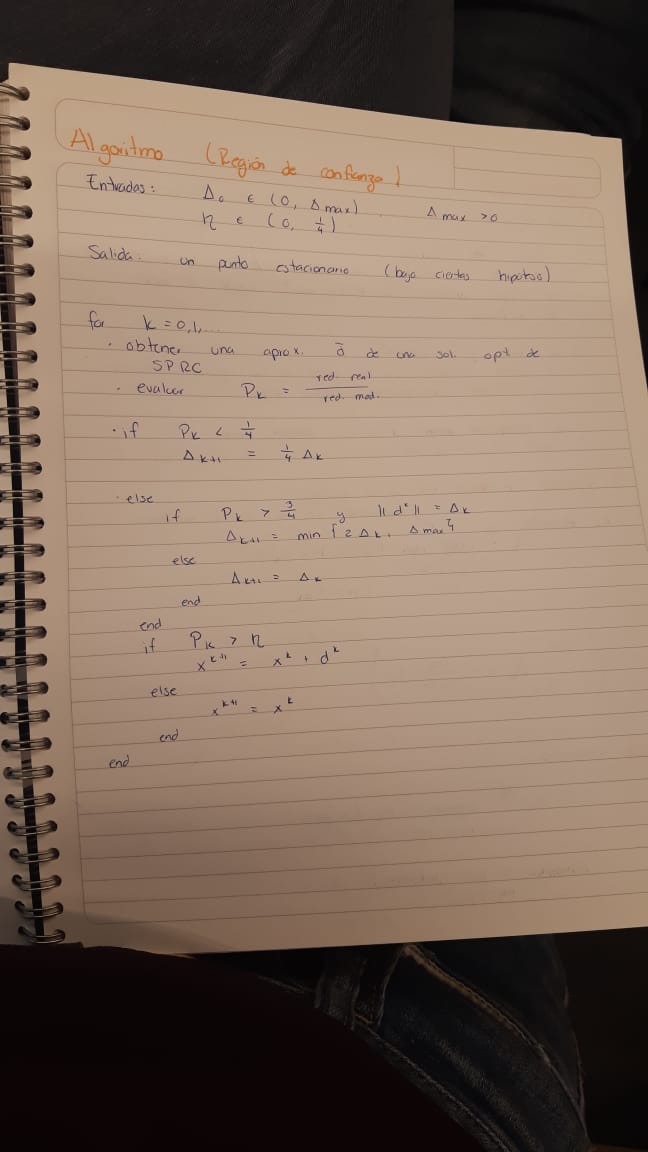 Algoritmo (Región de confianza)
Entradas: Δ₀ ∈ (0, Δmax) Δmax > 0
η ∈ (0, 1/4)
Salida. un punto estacionario (bajo ciertas hipótesis)
for k = 0,1,...
· obtener una aprox. d̄ de una sol. opt de
SPRC
· evaluar Pk = red. real / red. mod.
· if Pk < 1/4
Δk+1 = 1/4 Δk
· else
if Pk > 3/4 y ||dᵏ|| = Δk
Δk+1 = min {2Δk, Δmax}
else
Δk+1 = Δk
end
end
if Pk > η
xᵏ⁺¹ = xᵏ + dᵏ
else
xᵏ⁺¹ = xᵏ
end
end